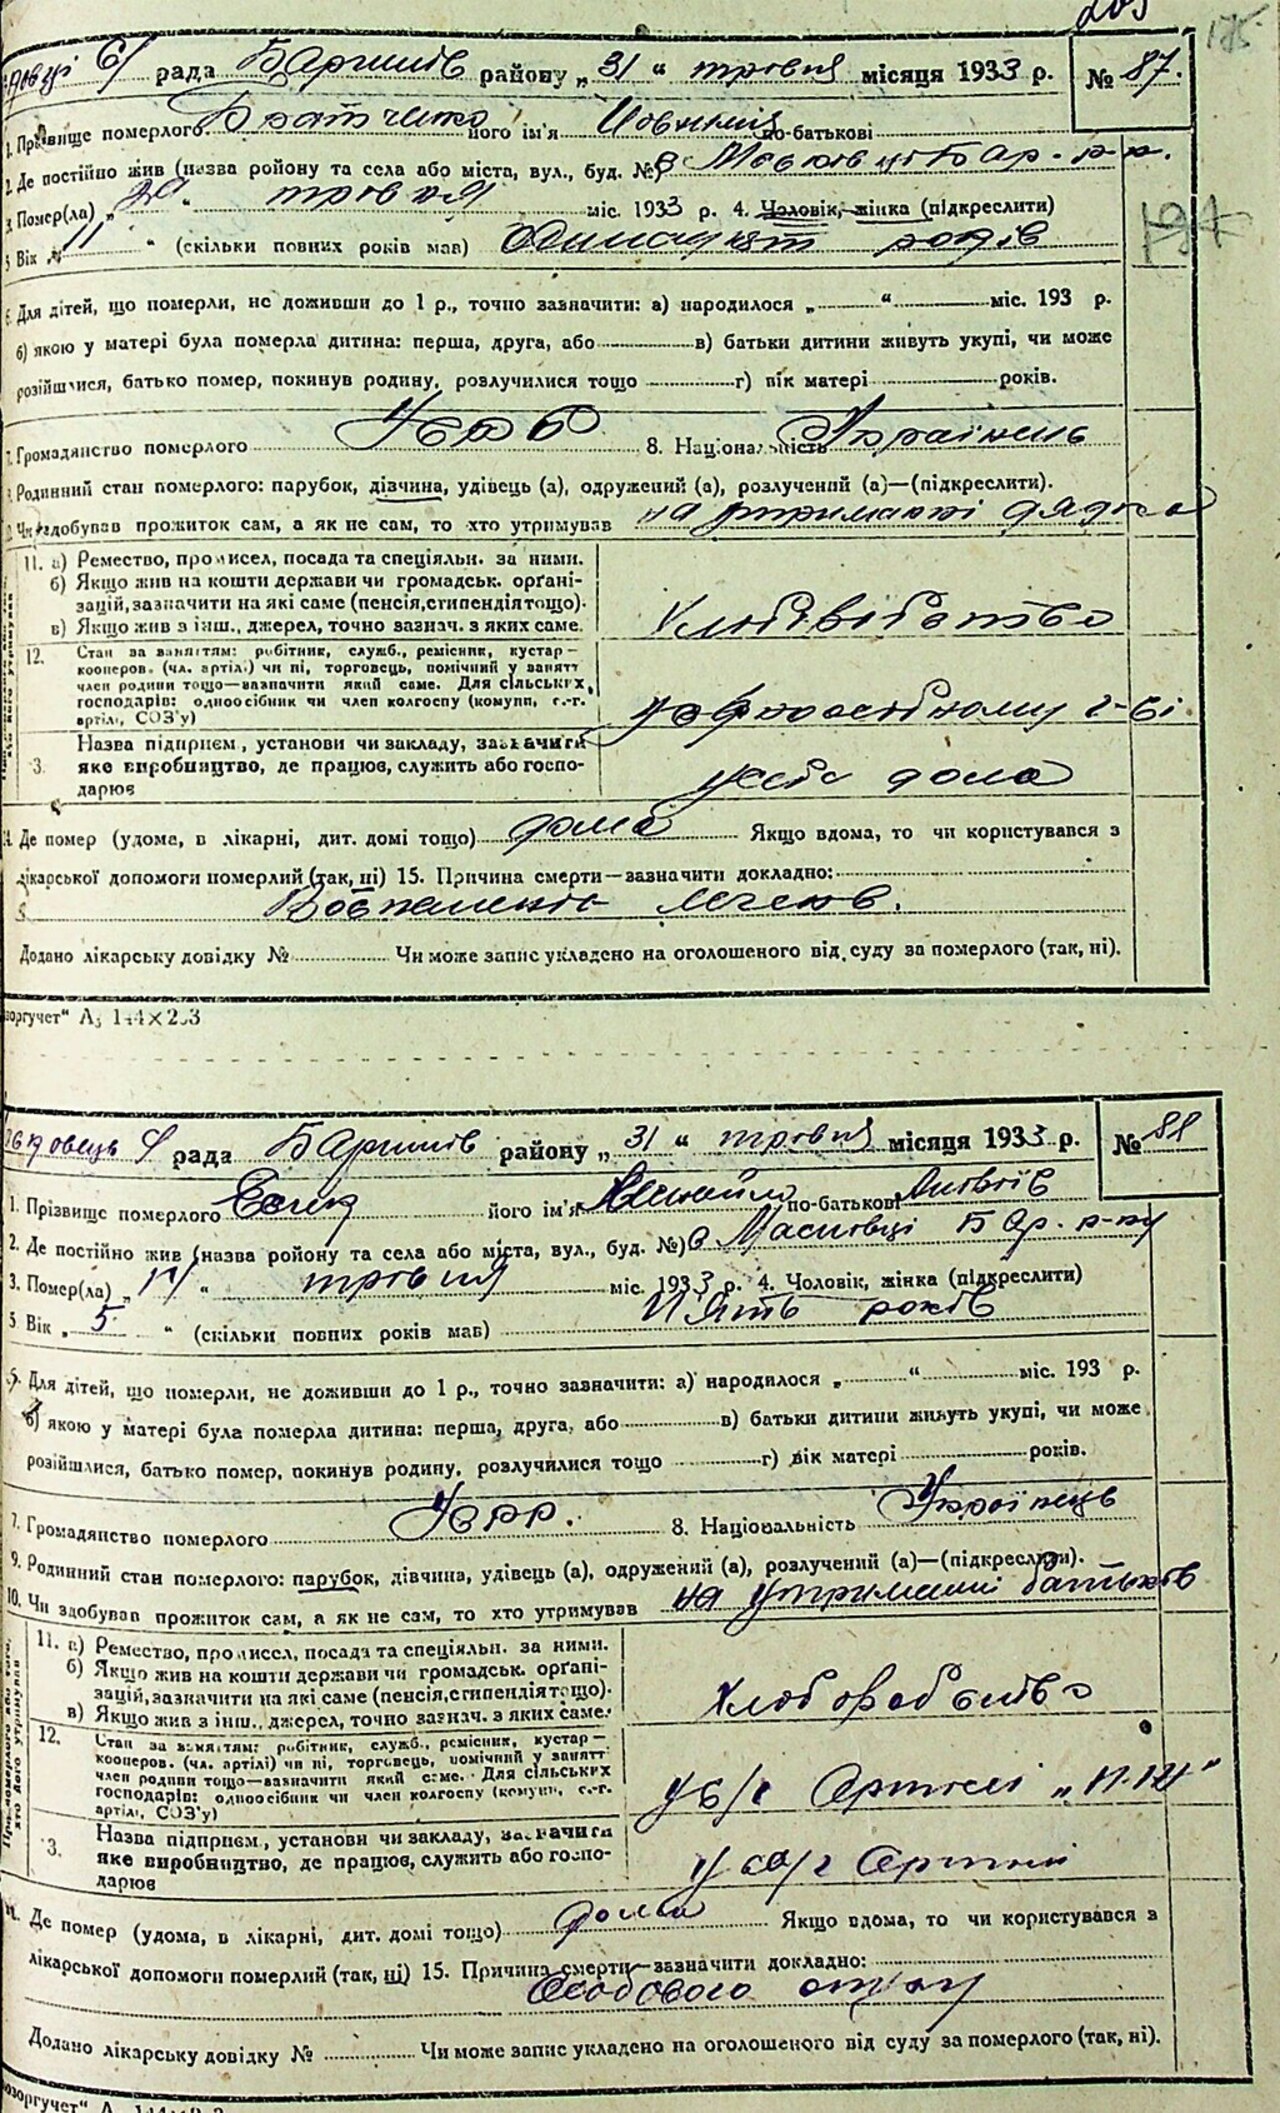 203
175
с/ рада Баришів району „31“ травня місяця 1933 р. № 87.
1. Прізвище померлого Братченко його ім'я по-батькові
2. Де постійно жив (назва ройону та села або міста, вул., буд. №) Бар. р-н.
3. Помер(ла) „ “ травня міс. 1933 р. 4. Чоловік, жінка (підкреслити)
197
5. Вік „11 “ (скільки повних років мав) років
6. Для дітей, що померли, не доживши до 1 р., точно зазначити: а) народилося „ “ міс. 193 р.
б) якою у матері була померла дитина: перша, друга, або в) батьки дитини живуть укупі, чи може
розійшлися, батько помер, покинув родину, розлучилися тощо г) вік матері років.
7. Громадянство померлого 8. Національність Українець
9. Родинний стан померлого: парубок, дівчина, удівець (а), одружений (а), розлучений (а)—(підкреслити).
10. Чи здобував прожиток сам, а як не сам, то хто утримував на утриманні
11. а) Ремество, промисел, посада та спеціяльн. за ними.
б) Якщо жив на кошти держави чи громадськ. орґані-
зацій, зазначити на які саме (пенсія, стипендія тощо).
в) Якщо жив з інш., джерел, точно зазнач. з яких саме.
12. Стан за заняттям: робітник, служб., ремісник, кустар—
кооперов. (чл. артілі) чи ні, торговець, помічний у занятт
член родини тощо—зазначити який саме. Для сільських
господарів: одноосібник чи член колгоспу (комуни, с.-г.
артілі, СОЗ'у)
3. Назва підприєм., установи чи закладу, зазначити
яке виробництво, де працює, служить або госпо-
дарює
дома
14. Де помер (удома, в лікарні, дит. домі тощо) дома Якщо вдома, то чи користувався з
лікарської допомоги померлий (так, ні) 15. Причина смерти—зазначити докладно:
легенів.
Додано лікарську довідку № Чи може запис укладено на оголошеного від суду за померлого (так, ні).
зоргучет“ А5 144×203
рада Баришів району „31“ травня місяця 1933 р. № 88
1. Прізвище померлого його ім'я Михайло по-батькові
2. Де постійно жив (назва ройону та села або міста, вул., буд. №) с Масківці Бар. р-ну
3. Помер(ла) „ “ травня міс. 1933 р. 4. Чоловік, жінка (підкреслити)
5. Вік „5 “ (скільки повних років мав) Пять років
6. Для дітей, що померли, не доживши до 1 р., точно зазначити: а) народилося „ “ міс. 193 р.
б) якою у матері була померла дитина: перша, друга, або в) батьки дитини живуть укупі, чи може
розійшлися, батько помер, покинув родину, розлучилися тощо г) вік матері років.
7. Громадянство померлого УСРР. 8. Національність Українець
9. Родинний стан померлого: парубок, дівчина, удівець (а), одружений (а), розлучений (а)—(підкреслити).
10. Чи здобував прожиток сам, а як не сам, то хто утримував на утриманні батьків
11. а) Ремество, промисел, посада та спеціяльн. за ними.
б) Якщо жив на кошти держави чи громадськ. орґані-
зацій, зазначити на які саме (пенсія, стипендія тощо).
в) Якщо жив з інш., джерел, точно зазнач. з яких саме.
Хлоборобство
12. Стан за заняттям: робітник, служб., ремісник, кустар—
кооперов. (чл. артілі) чи ні, торговець, помічний у занятт
член родини тощо—зазначити який саме. Для сільських
господарів: одноосібник чи член колгоспу (комуни, с.-г.
артілі, СОЗ'у)
у с/г Артилі
3. Назва підприєм., установи чи закладу, зазначити
яке виробництво, де працює, служить або госпо-
дарює
у с/г Артилі
14. Де помер (удома, в лікарні, дит. домі тощо) дома Якщо вдома, то чи користувався з
лікарської допомоги померлий (так, ні) 15. Причина смерти—зазначити докладно:
Додано лікарську довідку № Чи може запис укладено на оголошеного від суду за померлого (так, ні).